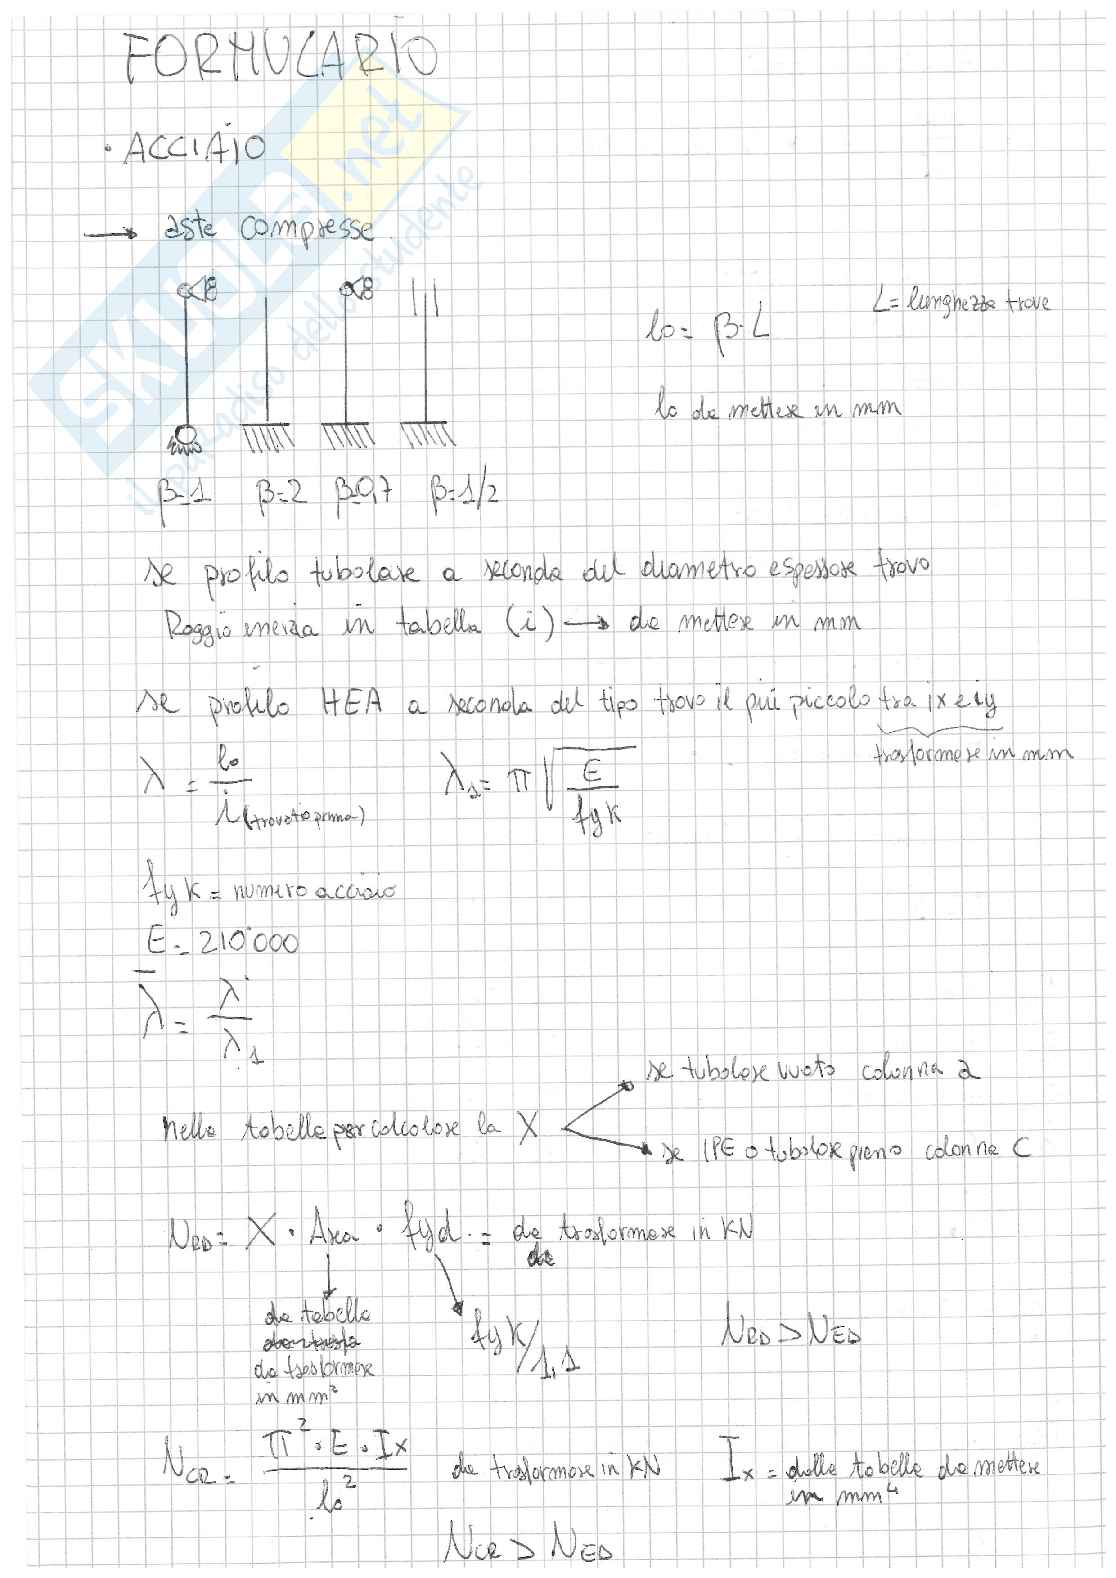 FORMULARIO
• ACCIAIO
→ aste compresse
l0 = β·L
L = lunghezza trave
l0 da mettere in mm
β=1 β=2 β=0,7 β=1/2
se profilo tubolare a seconda del diametro espessore trovo
Raggio inerzia in tabella (i) → da mettere in mm
se profilo HEA a seconda del tipo trovo il più piccolo tra ix e iy
trasformare in mm
λ = l0 / i (trovato prima)
λ1 = π √(E / fyk)
fyk = numero acciaio
E = 210'000
λ̅ = λ / λ1
se tubolare vuoto colonna a
nella tabella per calcolare la X
se IPE o tubolare pieno colonna C
NRD = X · Area · fyd = da trasformare in KN
da
da tabella
da trasformare
in mm²
fyk/1,1
NRD > NED
NCR = π² · E · Ix / l0²
da trasformare in KN
Ix = dalle tabelle da mettere
in mm⁴
NCR > NED
SKUOLA.net
il paradiso dello studente